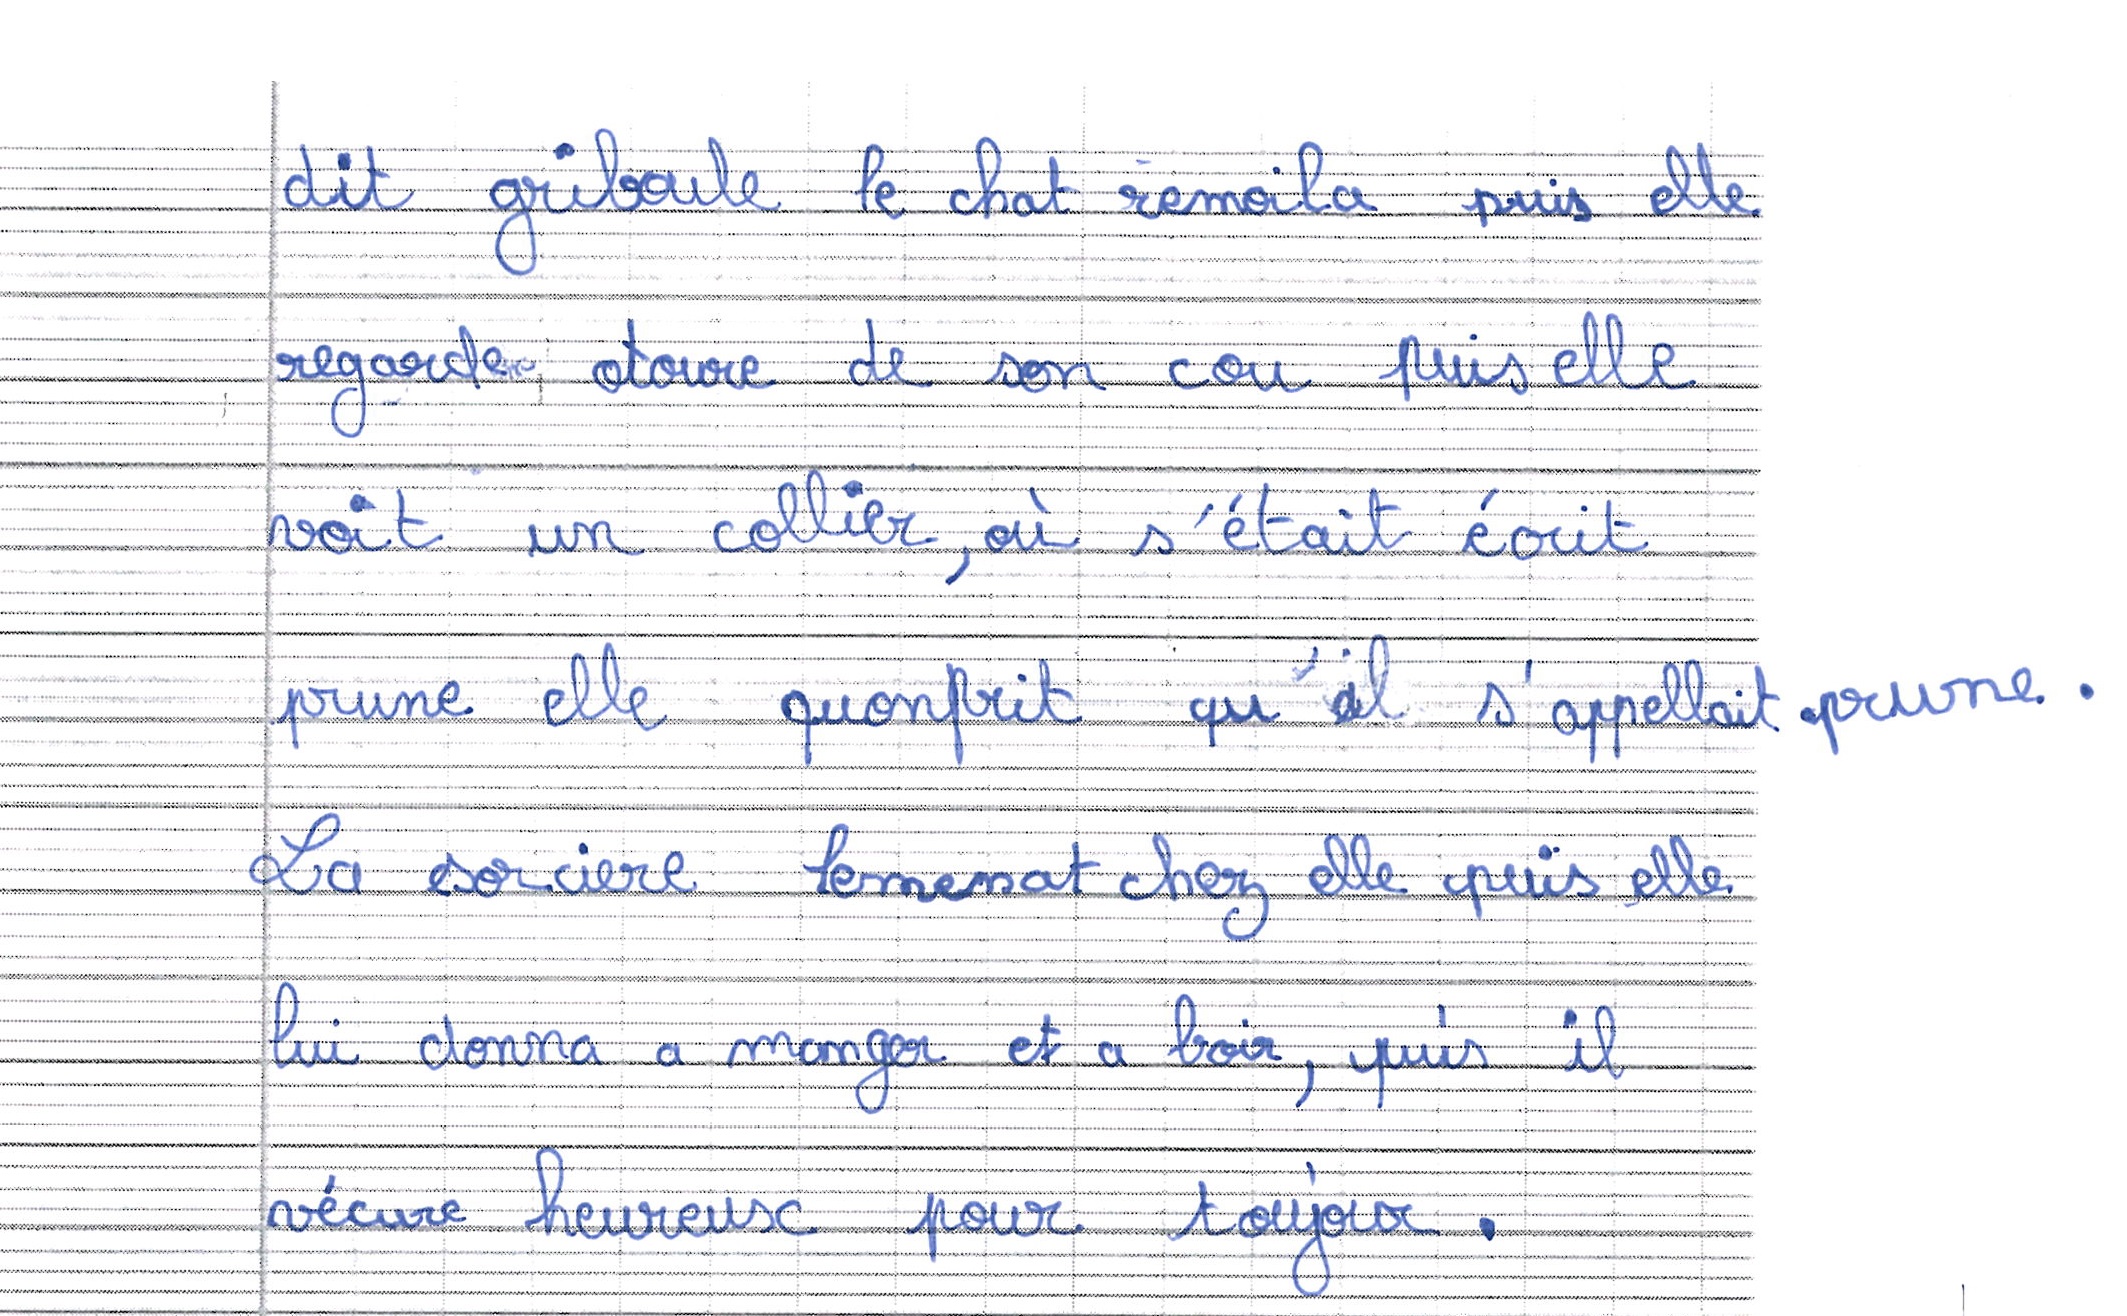 dit griboule le chat remoila puis elle
regarde otoure de son cou puis elle
voit un collier, où s'était écrit
prune elle quonprit qu'il s'appellait prune.
La sorciere lemenat chez elle puis elle
lui donna a manger et a boir, puis il
vécure heureuse pour toujour.